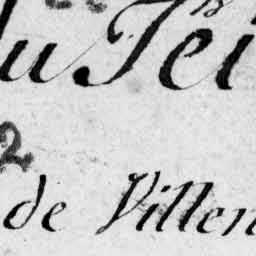 u Tei
2
de Villen